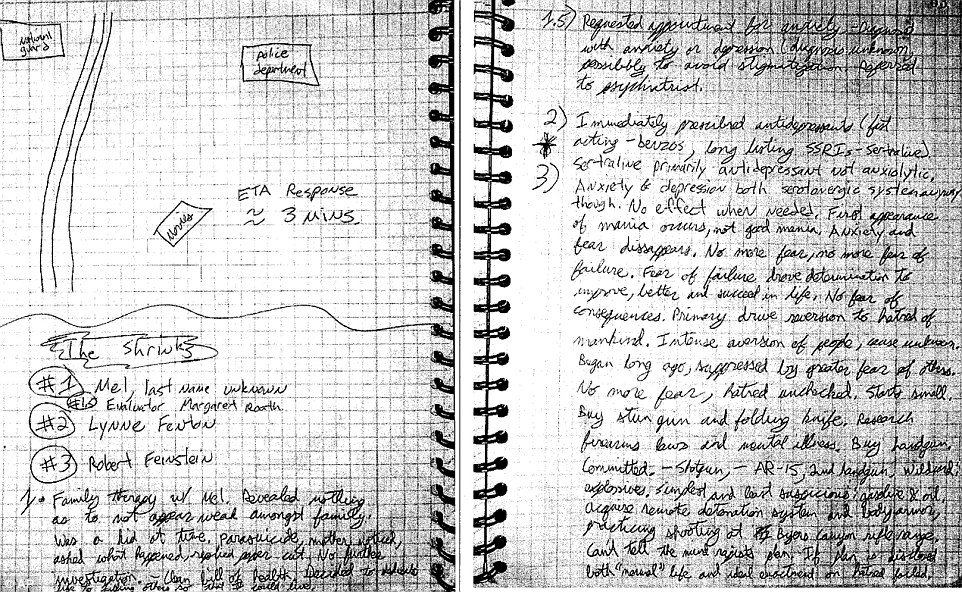 national
guard
police
department
ETA Response
≈ 3 mins
The Shrinks
#1 Mel, last name unknown
#1.5 Evaluator Margaret Roath
#2 Lynne Fenton
#3 Robert Feinstein
1. Family therapy w/ Mel. Revealed nothing
as to not appear weak amongst family.
Was a kid at time, parasuicide, mother noticed,
asked what happened, replied paper cut. No further
investigation. Clean bill of health. Decided to
1.5) Requested appointment for anxiety
with anxiety or depression (diagnosis unknown,
possibly to avoid stigmatization. Referred
to psychiatrist.
2) Immediately prescribed antidepressants (fast
acting - benzos, long lasting SSRIs - sertraline).
Sertraline primarily antidepressant not anxiolytic.
3) Anxiety & depression both serotonergic system anyway
though. No effect when needed. First appearance
of mania occurs, not good mania. Anxiety and
fear dissapears. No more fear, no more fear of
failure. Fear of failure drove determination to
improve, better and succeed in life. No fear of
consequences. Primary drive reversion to hatred of
mankind. Intense aversion of people, cause unknown.
Began long ago, suppressed by greater fear of others.
No more fear, hatred unchecked. Starts small.
Buy stun gun and folding knife. Research
firearms laws and mental illness. Buy handgun.
Committed. - Shotgun, - AR-15, 2nd handgun,
explosives. Simplest and least suspicious: gasoline & oil,
acquire remote detonation system and body armor,
practicing shooting at Byers Canyon rifle range.
Can't tell the mind rapists plan. If plan is disclosed
both "normal" life and ideal enactment on hatred foiled.